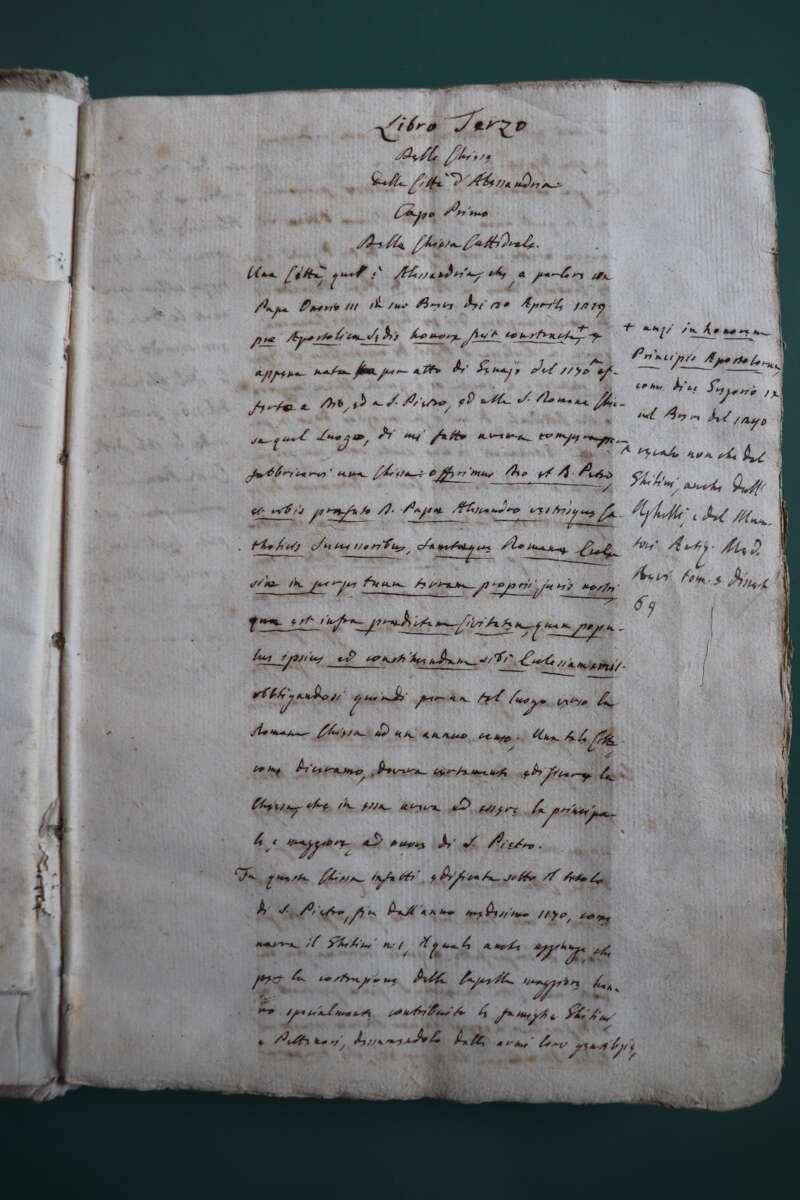 Libro Terzo
Delle Chiese
della Città d'Alessandria
Capo Primo
Della Chiesa Cattedrale.
Una Città, qual è Alessandria, che, a parlare con
Papa Onorio III in sua Breve dei 20 Aprile 1219
pro Apostolicæ Sedis honore fuit constructa, + e
appena nata per atto di Genajo del 1170 of-
ferta a Dio, ed a S. Pietro, ed alla S. Romana Chie-
sa quel Luogo, di cui fatto aveva compra per
fabbricarvi una Chiesa: offerimus Deo, et B. Petro,
et vobis præfato D. Papæ Alexandro vestrisque Ca-
tholicis Successoribus, Sanctæque Romanæ Eccle-
siæ in perpetuum terram proprii juris nostri,
quæ est infra prædictam Civitatem, quam popu-
lus ipsius ad constituendam sibi Ecclesiam emit.
obbligandosi quindi per un tal luogo verso la
Romana Chiesa ad un annuo censo. Una tale Città,
come diceramo, doveva certamente edificare la
Chiesa, che in essa aveva ad essere la principa-
le, e maggiore, ad onore di S. Pietro.
Fu questa Chiesa infatti edificata sotto il titolo
di S. Pietro, fin dall'anno medesimo 1170, come
narra il Ghilini n. 1, il quale anche aggiunge, che
per la costruzione della Capella maggiore han-
no specialmente contribuito le famiglie Ghilini,
e Pettenari, dessumendolo dalle armi loro gentilizie,
+ anzi in honorem
Principis Apostolorum,
come dice Gregorio IX
nel Breve del 1240
recato non che dal
Ghilini, anche dall'
Ughelli, e dal Mura-
tori Antiq. Med.
Aevi tom. 5 dissert.
69